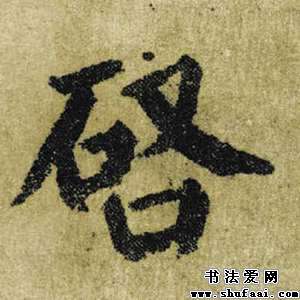 啓
书法爱网
www.shufaai.com